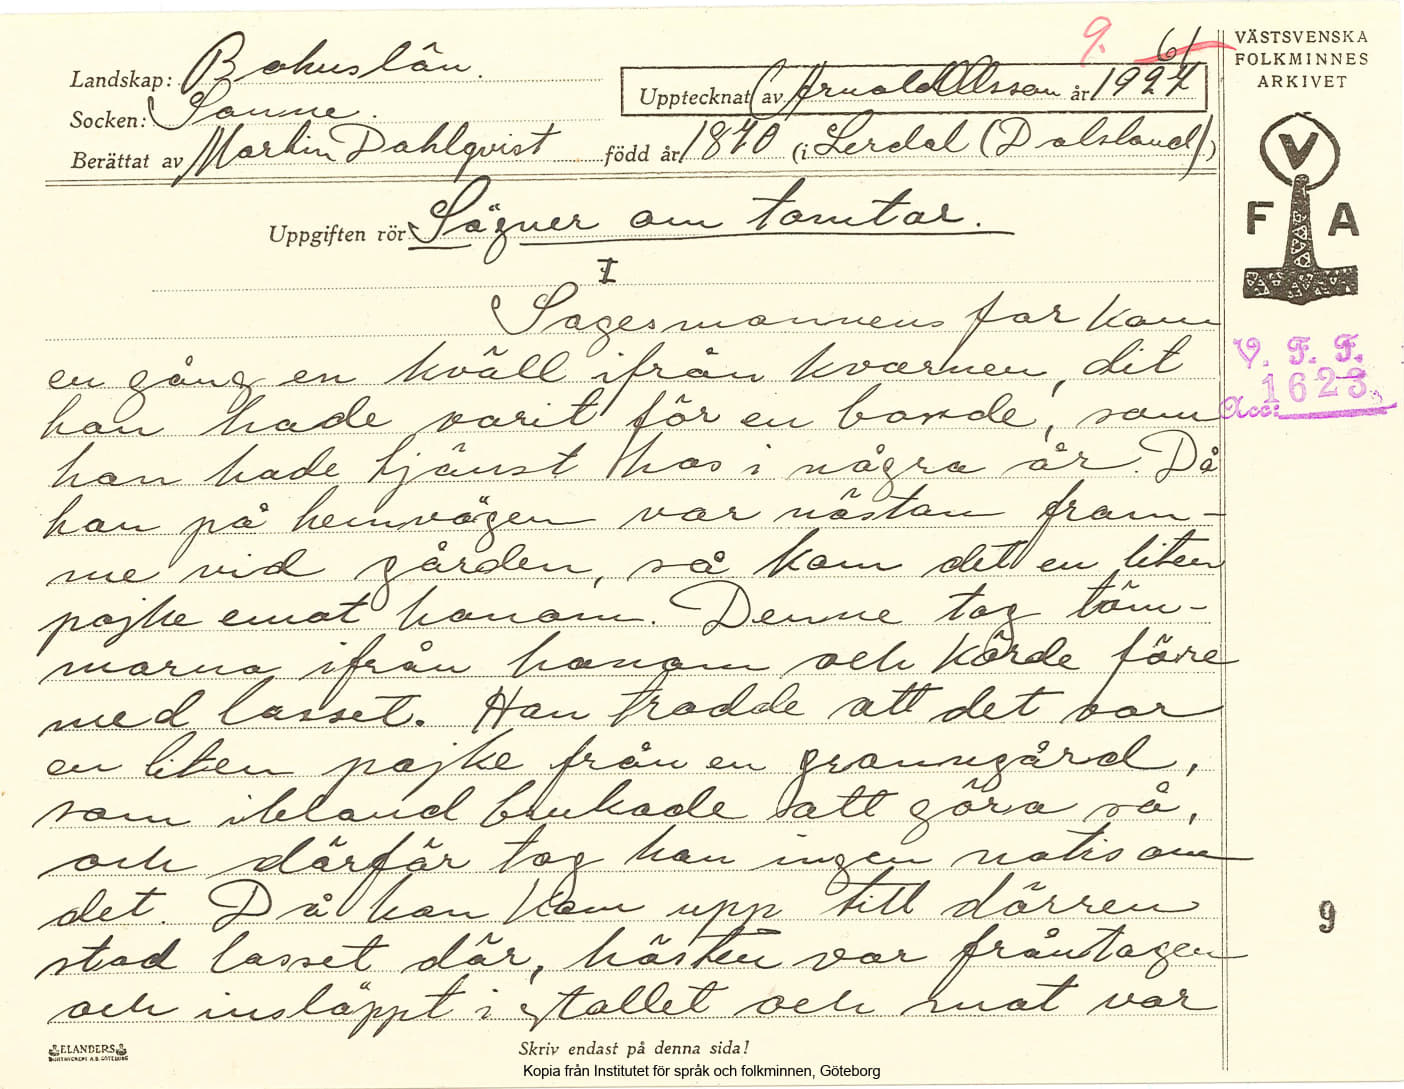 9. 61
VÄSTSVENSKA
FOLKMINNES
ARKIVET
Landskap: Bohuslän.
Upptecknat av Arnold Olsson år 1927
Socken: Sanne.
Berättat av Martin Dahlqvist född år 1870 (i Lerdal (Dalsland))
V
F A
Uppgiften rör Sägner om tomtar.
I
Sagesmannens far kom
en gång en kväll ifrån kvarnen, dit
han hade varit för en bonde, som
han hade tjänst hos i några år. Då
han på hemvägen var nästan fram-
me vid gården, så kom det en liten
pojke emot honom. Denne tog töm-
marna ifrån honom och körde före
med lasset. Han trodde att det var
en liten pojke från en granngård,
som ibland brukade att göra så,
och därför tog han ingen notis om
det. Då han kom upp till dörren
stod lasset där, hästen var fråntagen
och insläppt i stallet och mat var
V. F. F.
Acc: 1623.
9
ELANDERS
BOKTRYCKERI A.B. GÖTEBORG
Skriv endast på denna sida!
Kopia från Institutet för språk och folkminnen, Göteborg